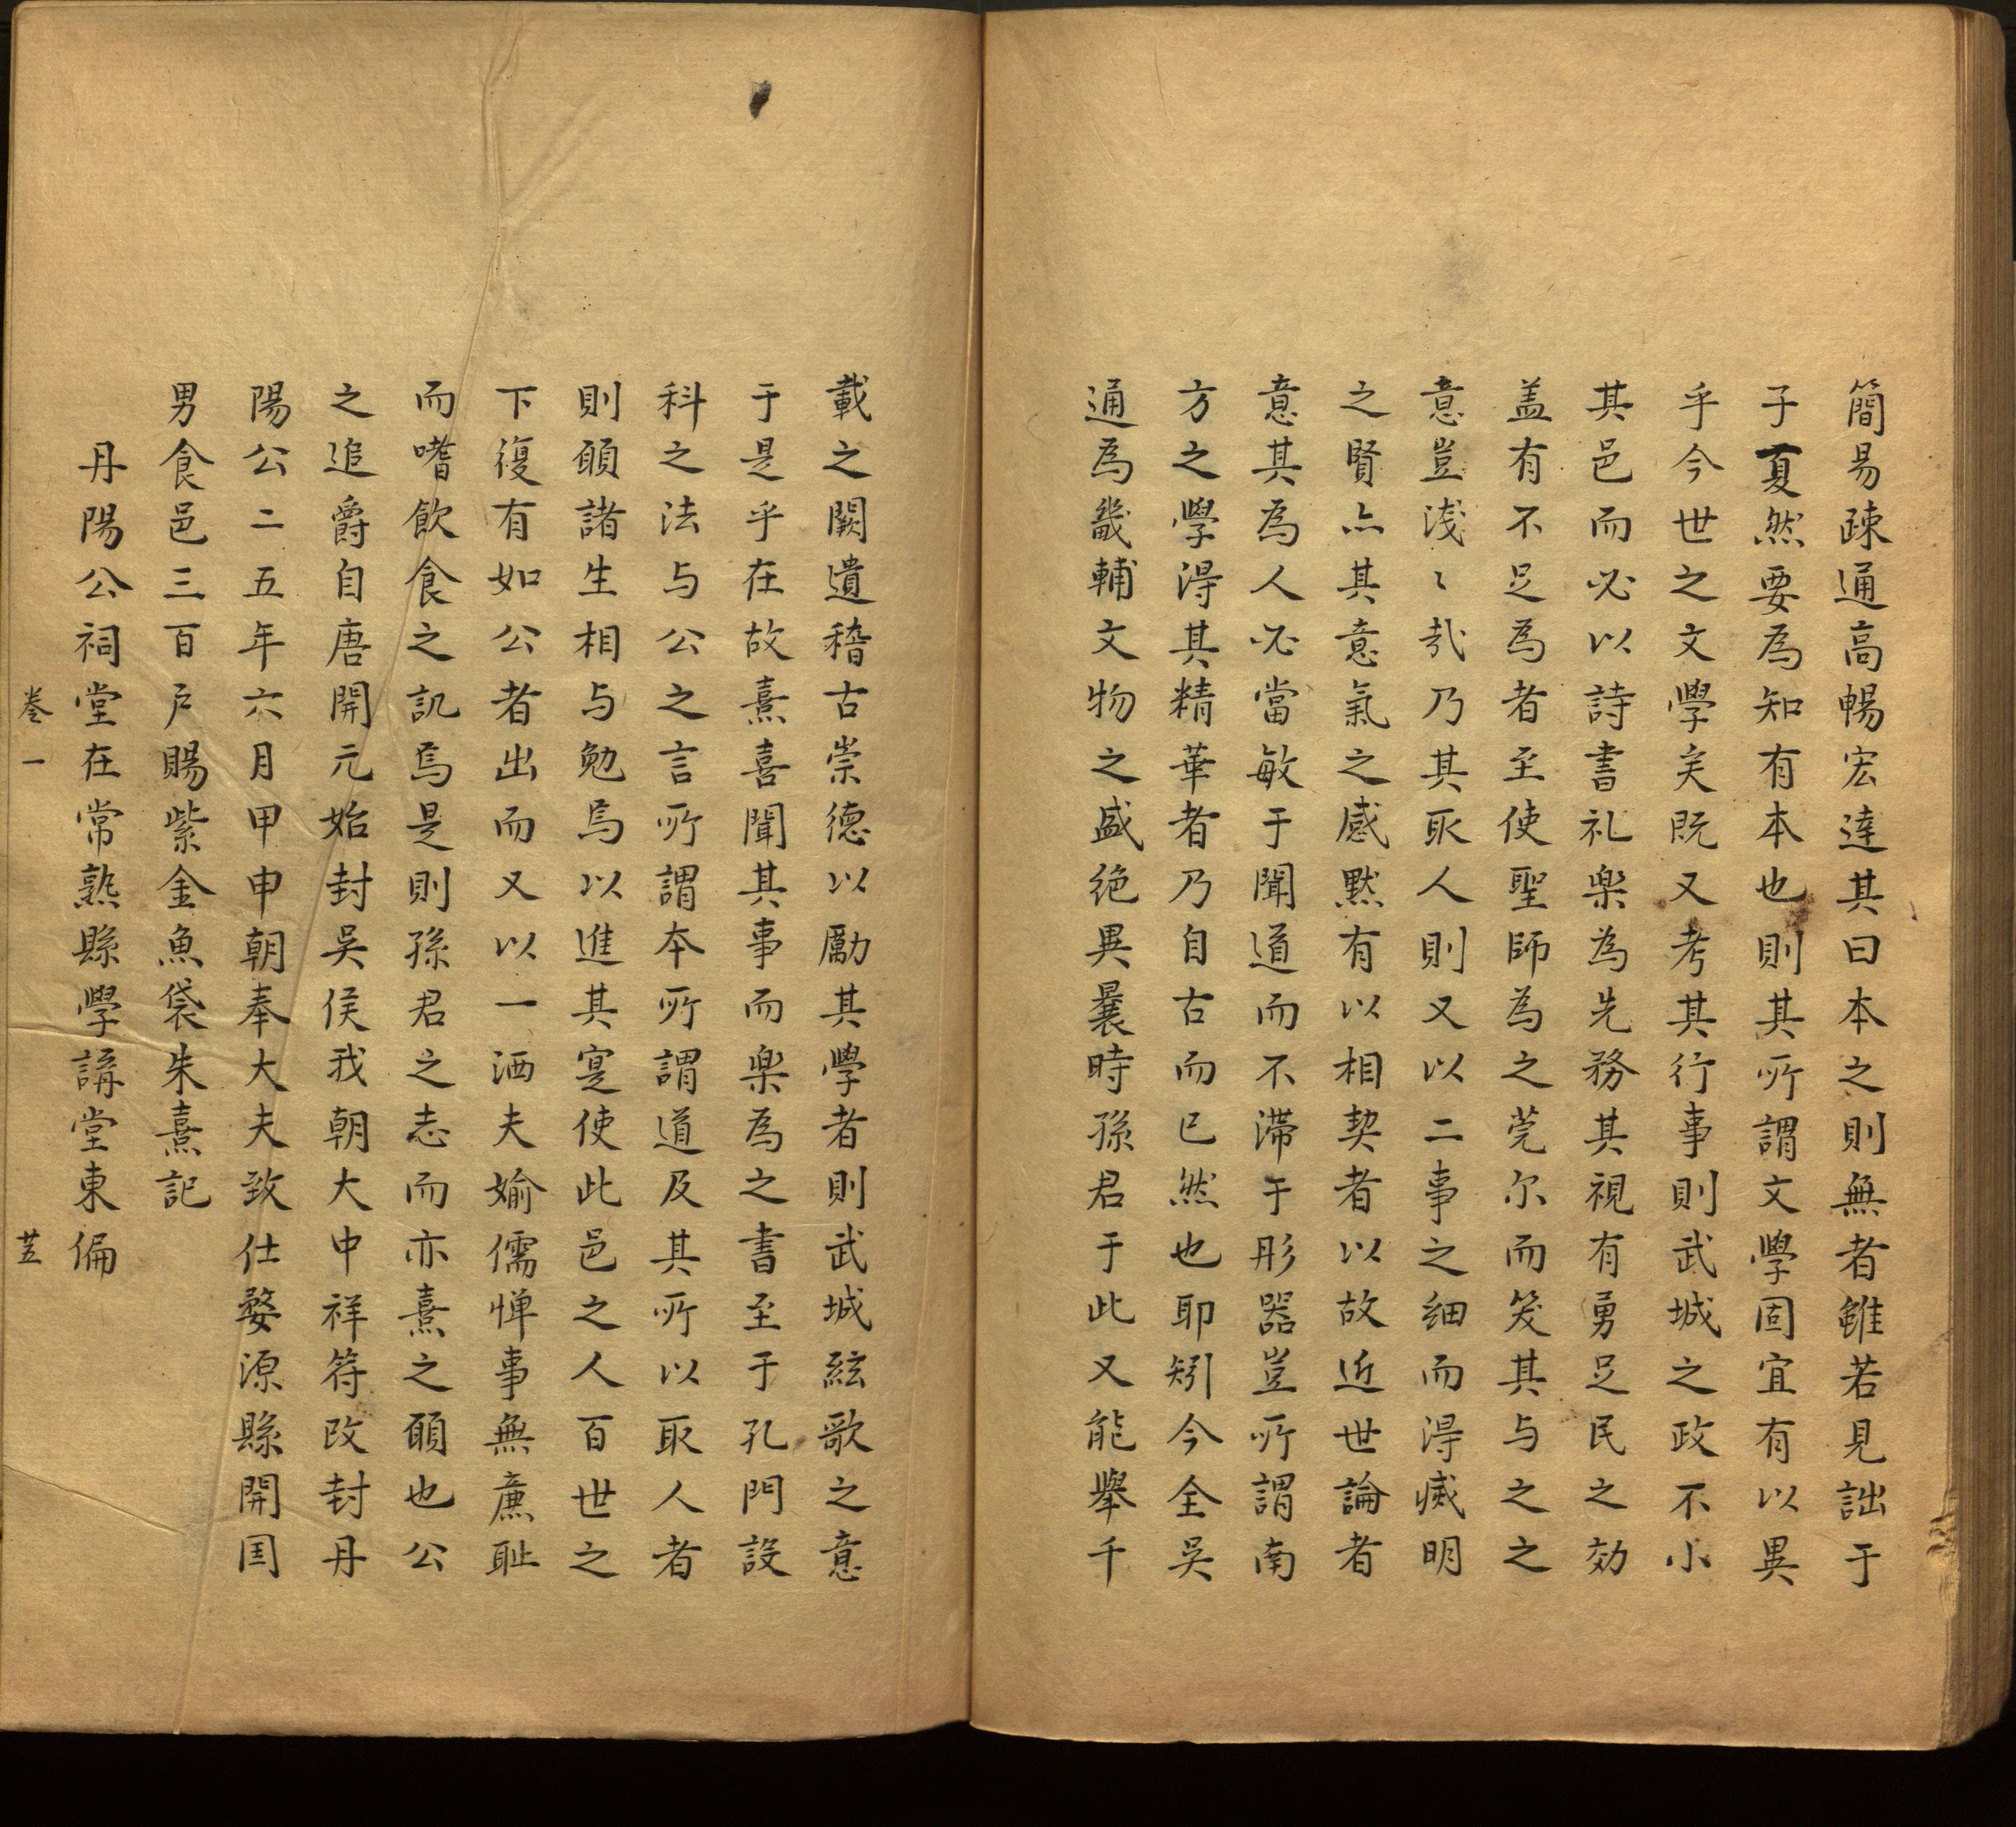 簡易疎通高暢宏逹其曰本之則無者雖若見詘于
子夏然要為知有本也則其所謂文學固宜有以異
乎今世之文學矣既又考其行事則武城之政不小
其邑而必以詩書礼樂為先務其視有勇足民之効
盖有不足為者至使聖師為之莞尔而笑其与之之
意豈淺〻㢤乃其取人則又以二事之細而得㓕明
之賢亦其意氣之感黙有以相契者以故近世論者
意其為人必當敏于聞道而不滯于形器豈所謂南
方之學得其精華者乃自古而已然也耶矧今全吳
通為畿輔文物之盛絶異曩時孫君于此又能舉千
載之闕遺稽古崇德以勵其學者則武城絃歌之意
于是乎在故熹喜聞其事而樂為之書至于孔門設
科之法与公之言所謂本所謂道及其所以取人者
則願諸生相与勉焉以進其寔使此邑之人百世之
下復有如公者出而又以一洒夫媮儒惮事無廉耻
而嗜飲食之訊焉是則孫君之志而亦熹之願也公
之追爵自唐開元始封吳侯我朝大中祥符改封丹
陽公二五年六月甲申朝奉大夫致仕婺源縣開国
男食邑三百戶賜紫金魚袋朱熹記
丹陽公祠堂在常熟縣學講堂東偏
卷一